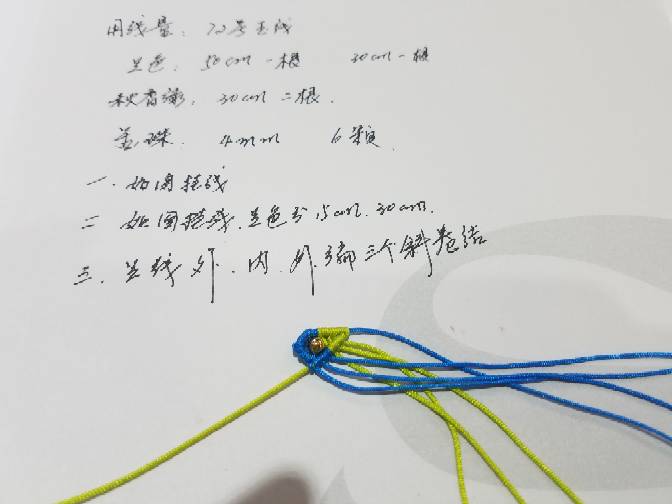 用线量：72号玉线
兰色：50cm一根 30cm一根
秋香绿：30cm二根．
盖珠．4mm 6颗
一．如图挂线
二 如图挂线．兰色分15cm．30cm．
三．兰线外．内．外．编三个斜卷结